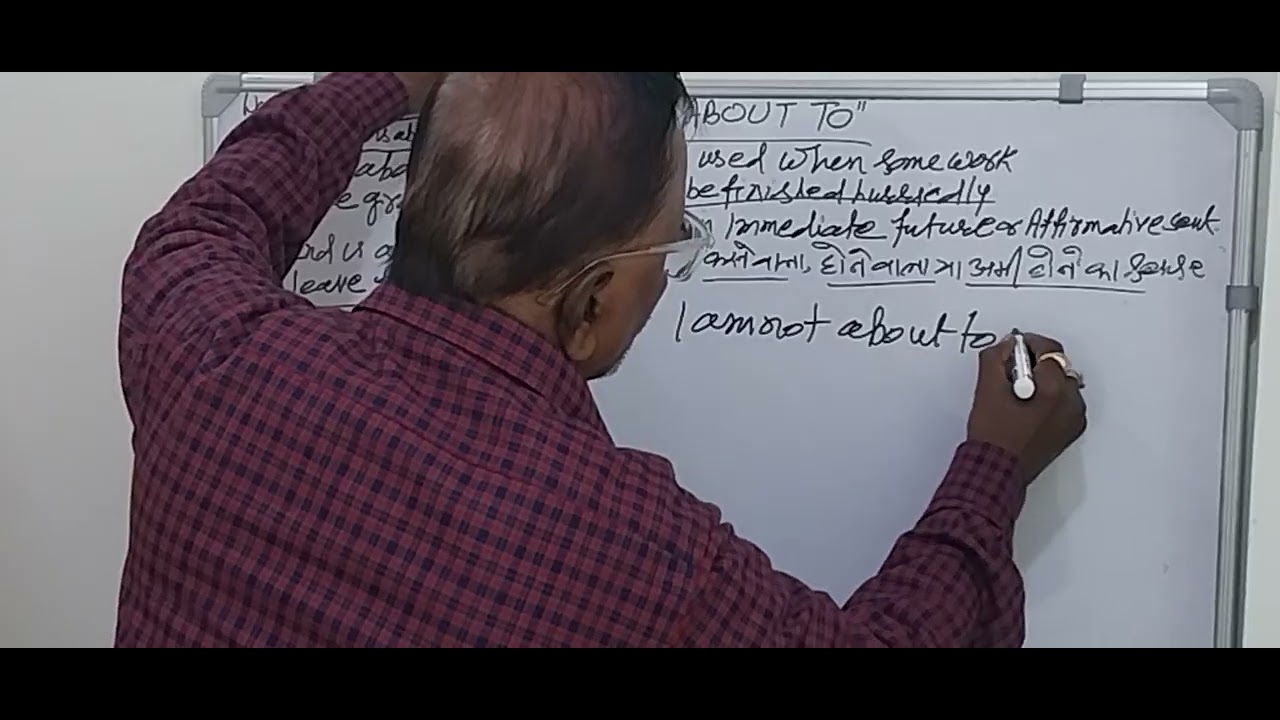 ABOUT TO"
used when some work
be finished hurriedly
Immediate future or Affirmative sent.
करने वाला, होने वाला या अभी होने का sense
leave
I am not about to